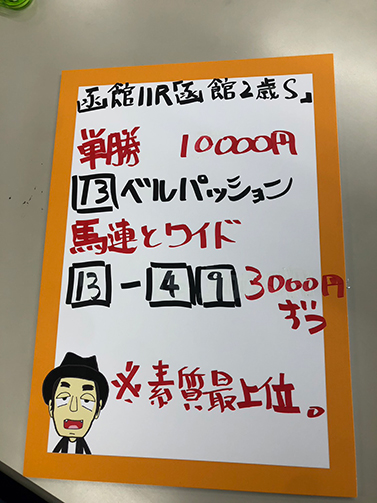 函館11R函館2歳S』
単勝 10000円
13ベルパッション
馬連とワイド
13-4 9 3000円
ずつ
※素質最上位。